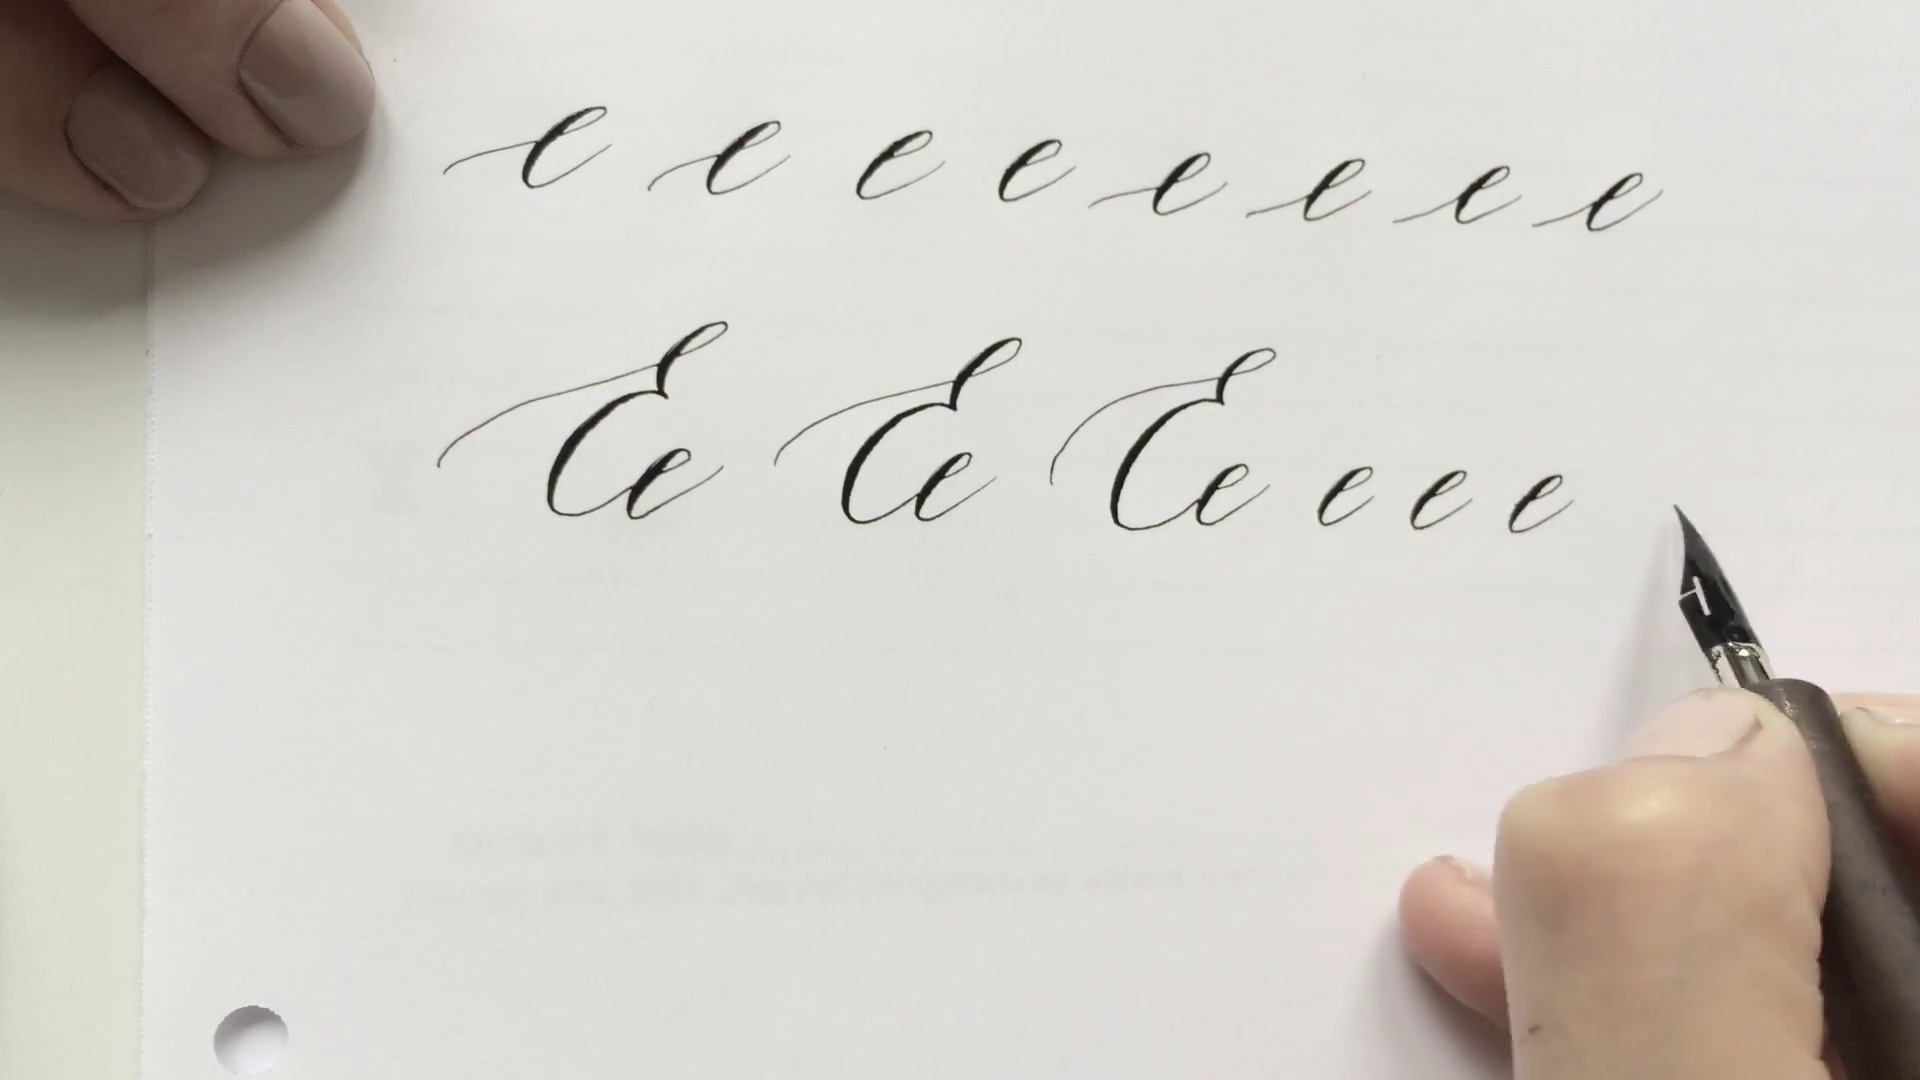 e e e e e e e e
Ee Ee Ee e e e